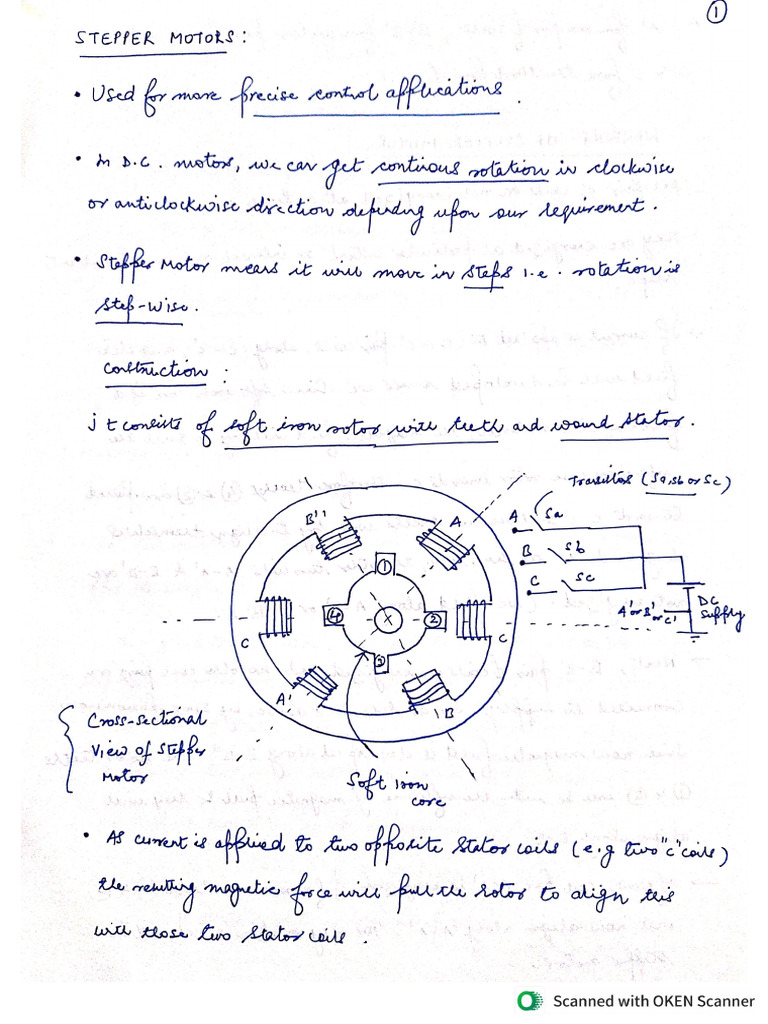 1
STEPPER MOTORS:
• Used for more precise control applications.
• In D.C. motors, we can get continous rotation in clockwise
or anticlockwise direction depending upon our requirement.
• Stepper Motor means it will move in steps i.e. rotation is
step-wise.
Construction:
it consists of soft iron rotor with teeth and wound stator.
Transistors (Sa, Sb or Sc)
B''
A
A Sa
B Sb
C Sc
DC
Supply
A' or B' or C'
1
4
2
3
C
C
A'
B
Cross-sectional
View of Stepper
Motor
Soft iron
core
• As current is applied to two opposite stator coils (e.g two "c" coils)
the resulting magnetic force will pull the rotor to align this
with those two stator coils.
Scanned with OKEN Scanner